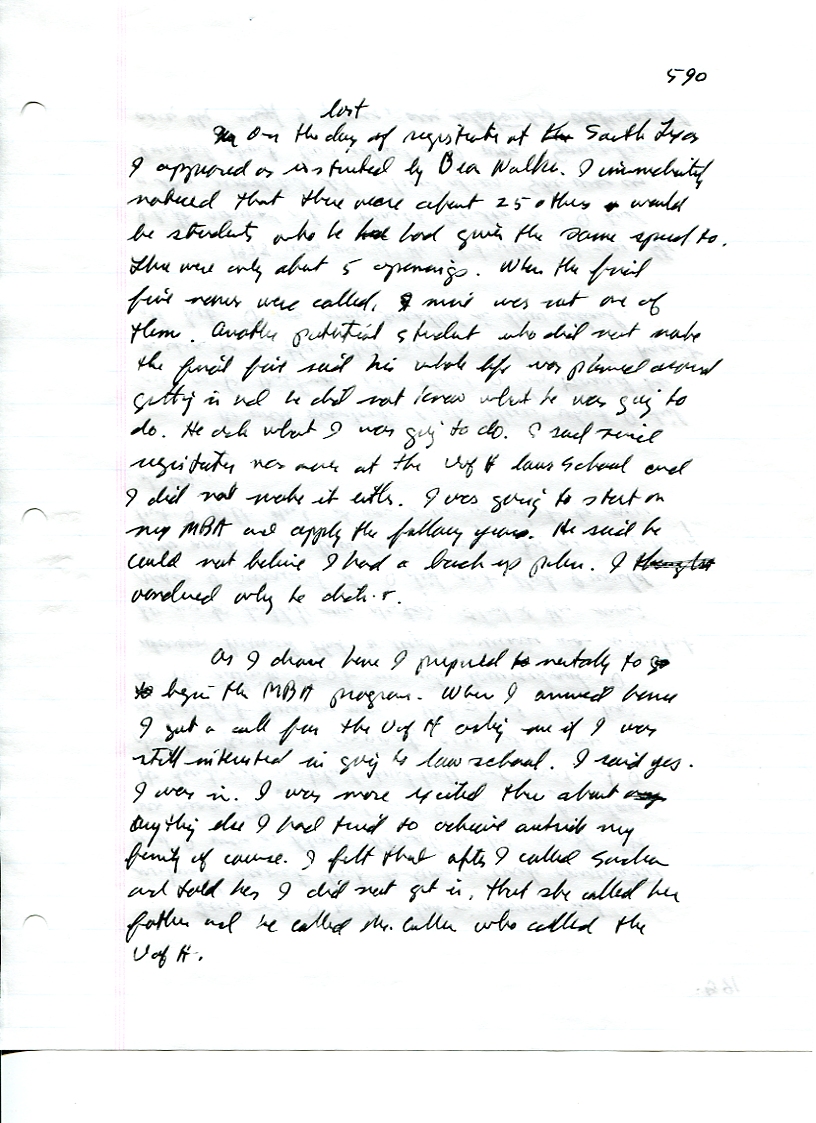 590
last
On the day of registration at South Texas
I appeared as instructed by Dean Walker. I immediately
noticed that there were about 25 others would
be students who he had had given the same speech to.
There were only about 5 openings. When the final
five names were called, mine was not one of
them. Another potential student who did not make
the final five said his whole life was planned around
getting in and he did not know what he was going to
do. He ask what I was going to do. I said since
registration was over at the U of H law school and
I did not make it either. I was going to start on
my MBA and apply the following year. He said he
could not believe I had a back up plan. I thought
wondered why he didn't.
As I drove home I prepared to mentally to go
to begin the MBA program. When I arrived home
I got a call from the U of H asking me if I was
still interested in going to law school. I said yes.
I was in. I was more excited then about any
anything else I had tried to achieve outside my
family of course. I felt that after I called
and told her I did not get in, that she called her
father and he called Mr. Cullen who called the
U of H.